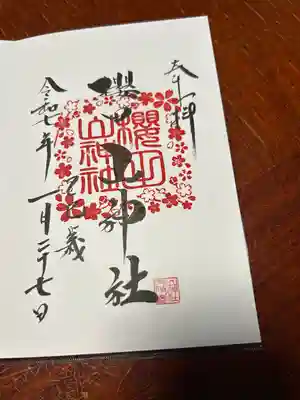 奉拝
櫻田山神社
櫻田
山神社
乙巳歳
令和七年
一月二十七日